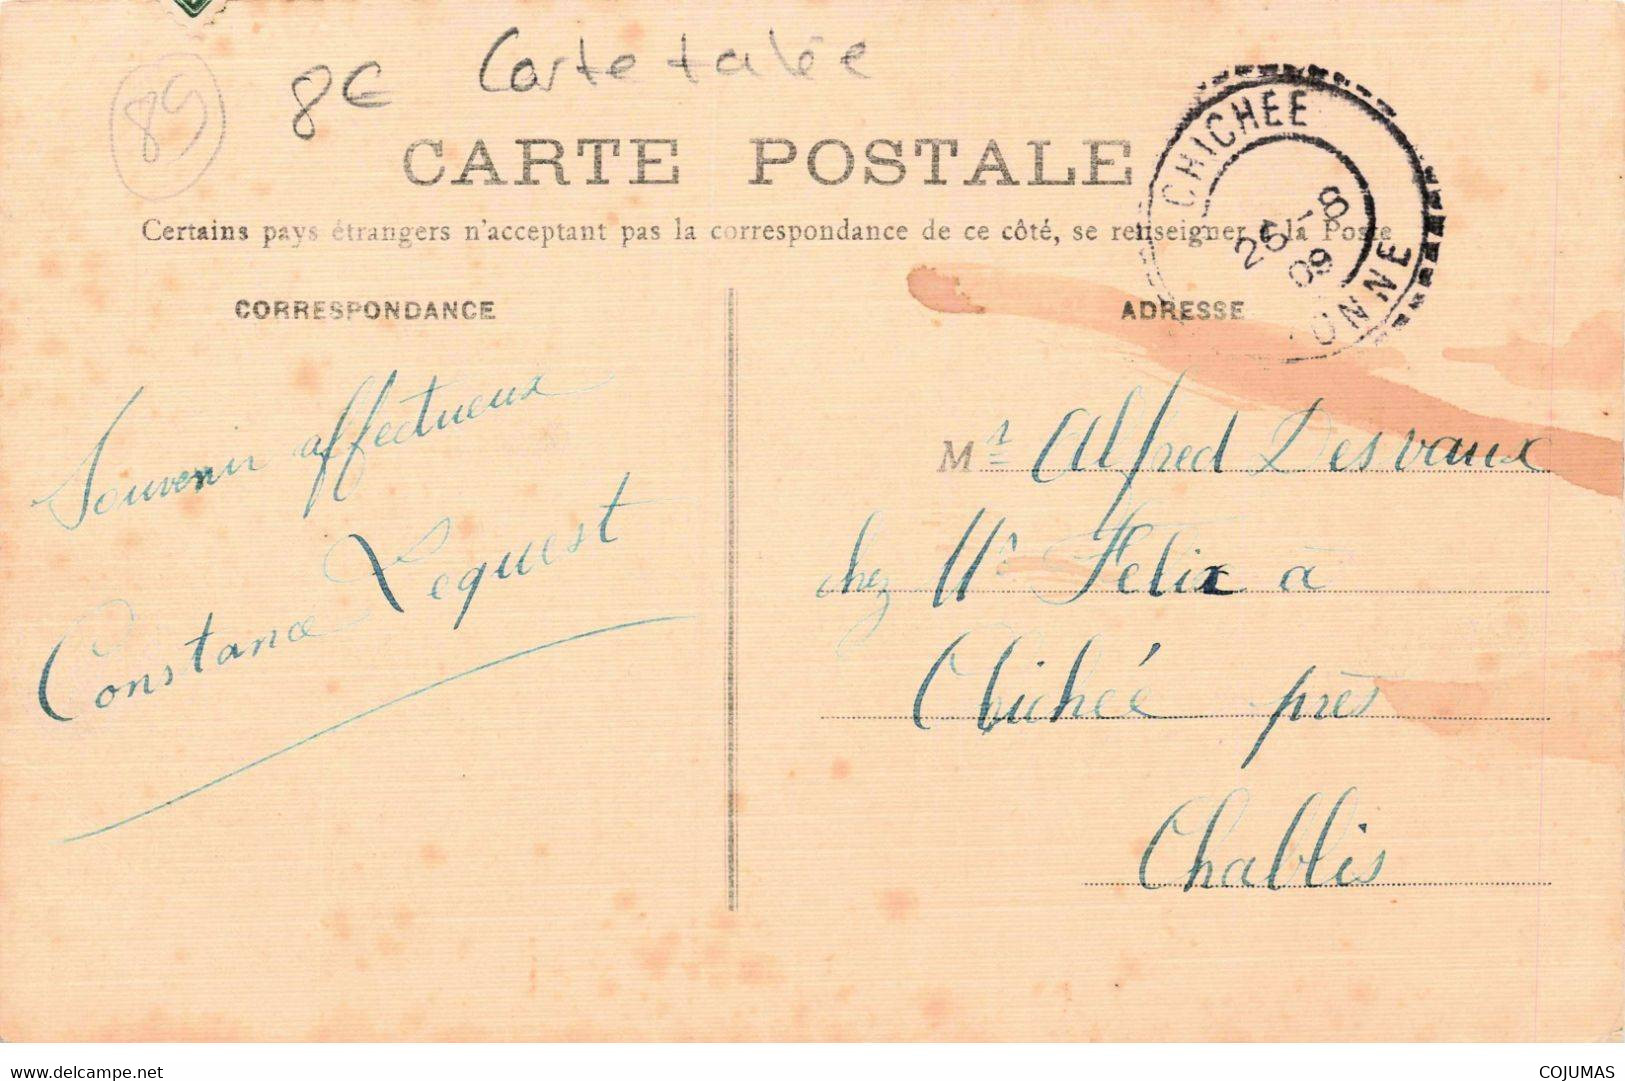 89
8€ Carte talée
CARTE POSTALE
Certains pays étrangers n'acceptant pas la correspondance de ce côté, se renseigner à la Poste
CHICHÉE
25 -8
09
YONNE
CORRESPONDANCE
ADRESSE
Souvenir affectueux
Constance Lequest
Mr Alfred Desvaux
chez Mr Felix à
Chichée près
Chablis
www.delcampe.net
COJUMAS